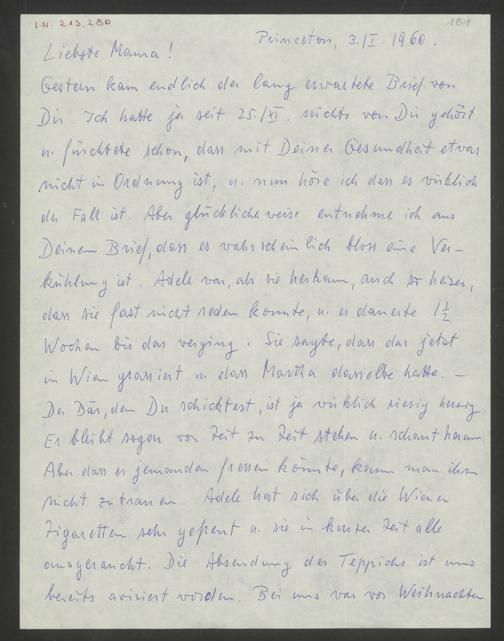 I.N. 213.280
161
Princeton, 3./I. 1960.
Liebste Mama!
Gestern kam endlich der lang erwartete Brief von
Dir. Ich hatte ja seit 25./XI. nichts von Dir gehört
u. fürchtete schon, dass mit Deiner Gesundheit etwas
nicht in Ordnung ist, u. nun höre ich dass es wirklich
der Fall ist. Aber glücklicherweise entnehme ich aus
Deinem Brief, dass es wahrscheinlich bloss eine Ver-
kühlung ist. Adele war, als sie herkam, auch so heiser,
dass sie fast nicht reden konnte, u. es dauerte 1 1/2
Wochen bis das verging. Sie sagte, dass das jetzt
in Wien grassiert u. dass Martha dasselbe hatte. –
Der Bär, den Du schicktest, ist ja wirklich riesig herzig.
Er bleibt sogar von Zeit zu Zeit stehen u. schaut herum.
Aber dass er jemanden fressen könnte, kann man ihm
nicht zutrauen. Adele hat sich über die Wiener
Zigaretten sehr gefreut u. sie in kurzer Zeit alle
ausgeraucht. Die Absendung des Teppichs ist uns
bereits avisiert worden. Bei uns war vor Weihnachten